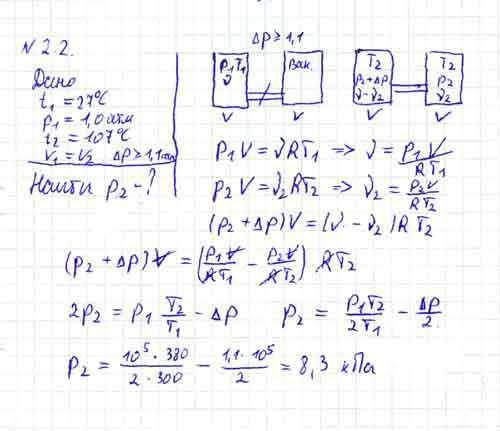 N 2.2.
Δp ≥ 1,1
Дано
t₁ = 27°C
p₁ = 1,0 атм
t₂ = 107°C
V₁ = V₂ Δp ≥ 1,1 атм
Найти p₂ - ?
p₁ T₁
ν
V
Вак.
V
T₂
p₂ + Δp
ν - ν₂
V
T₂
p₂
ν₂
V
p₁ V = ν R T₁ => ν = p₁ V / R T₁
p₂ V = ν₂ R T₂ => ν₂ = p₂ V / R T₂
(p₂ + Δp) V = (ν - ν₂) R T₂
(p₂ + Δp) V = (p₁ V / R T₁ - p₂ V / R T₂) R T₂
2p₂ = p₁ T₂ / T₁ - Δp p₂ = p₁ T₂ / 2 T₁ - Δp / 2.
p₂ = 10⁵ · 380 / 2 · 300 - 1,1 · 10⁵ / 2 = 8,3 кПа